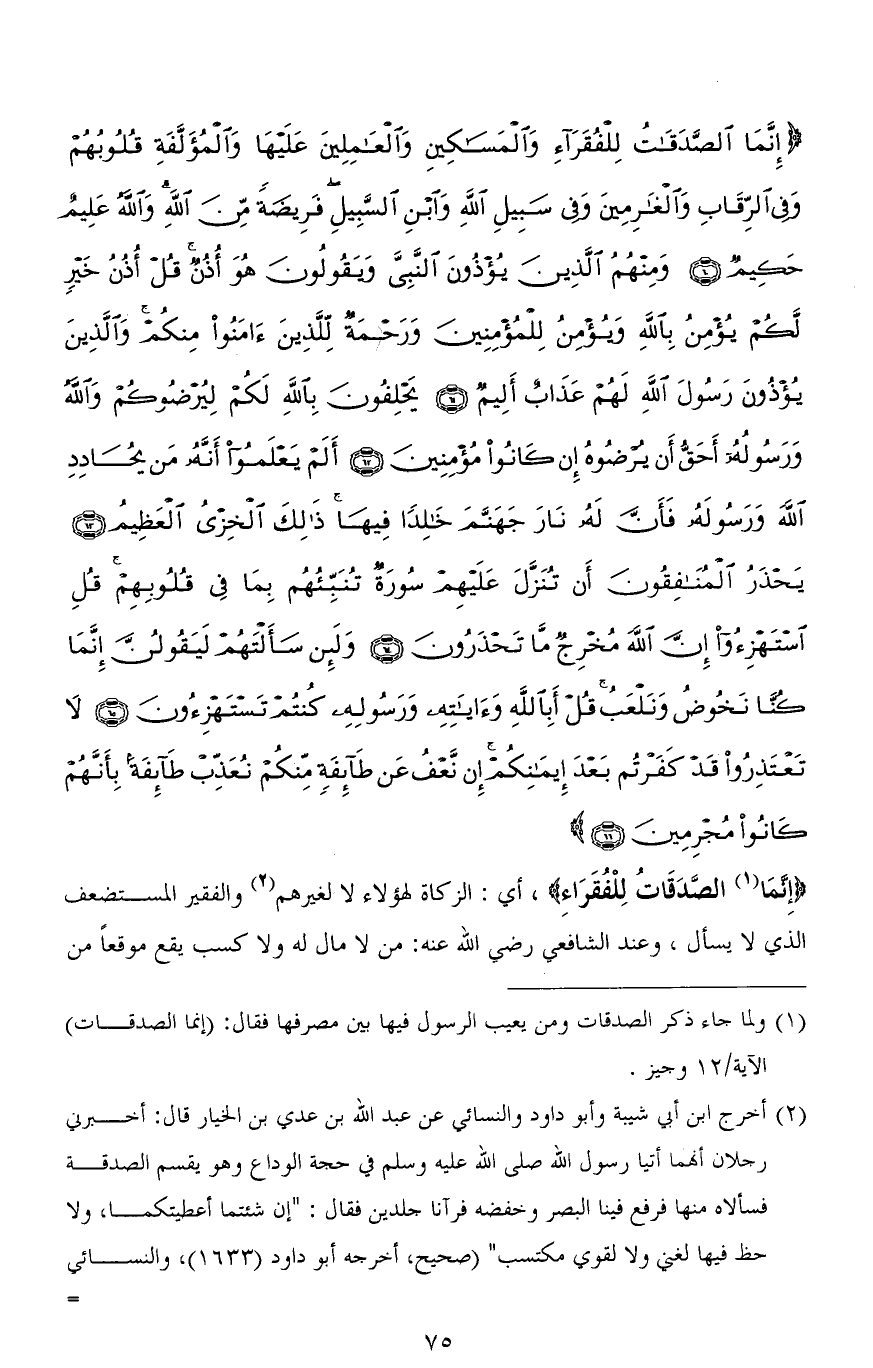 ﴿ إِنَّمَا ٱلصَّدَقَـٰتُ لِلْفُقَرَآءِ وَٱلْمَسَـٰكِينِ وَٱلْعَـٰمِلِينَ عَلَيْهَا وَٱلْمُؤَلَّفَةِ قُلُوبُهُمْ
وَفِى ٱلرِّقَابِ وَٱلْغَـٰرِمِينَ وَفِى سَبِيلِ ٱللَّهِ وَٱبْنِ ٱلسَّبِيلِ ۖ فَرِيضَةً مِّنَ ٱللَّهِ ۗ وَٱللَّهُ عَلِيمٌ
حَكِيمٌ ۝٦٠ وَمِنْهُمُ ٱلَّذِينَ يُؤْذُونَ ٱلنَّبِىَّ وَيَقُولُونَ هُوَ أُذُنٌ ۚ قُلْ أُذُنُ خَيْرٍ
لَّكُمْ يُؤْمِنُ بِٱللَّهِ وَيُؤْمِنُ لِلْمُؤْمِنِينَ وَرَحْمَةٌ لِّلَّذِينَ ءَامَنُوا۟ مِنكُمْ ۚ وَٱلَّذِينَ
يُؤْذُونَ رَسُولَ ٱللَّهِ لَهُمْ عَذَابٌ أَلِيمٌ ۝٦١ يَحْلِفُونَ بِٱللَّهِ لَكُمْ لِيُرْضُوكُمْ وَٱللَّهُ
وَرَسُولُهُۥٓ أَحَقُّ أَن يُرْضُوهُ إِن كَانُوا۟ مُؤْمِنِينَ ۝٦٢ أَلَمْ يَعْلَمُوٓا۟ أَنَّهُۥ مَن يُحَادِدِ
ٱللَّهَ وَرَسُولَهُۥ فَأَنَّ لَهُۥ نَارَ جَهَنَّمَ خَـٰلِدًا فِيهَا ۚ ذَٰلِكَ ٱلْخِزْىُ ٱلْعَظِيمُ ۝٦٣
يَحْذَرُ ٱلْمُنَـٰفِقُونَ أَن تُنَزَّلَ عَلَيْهِمْ سُورَةٌ تُنَبِّئُهُم بِمَا فِى قُلُوبِهِمْ ۚ قُلِ
ٱسْتَهْزِءُوٓا۟ إِنَّ ٱللَّهَ مُخْرِجٌ مَّا تَحْذَرُونَ ۝٦٤ وَلَئِن سَأَلْتَهُمْ لَيَقُولُنَّ إِنَّمَا
كُنَّا نَخُوضُ وَنَلْعَبُ ۚ قُلْ أَبِٱللَّهِ وَءَايَـٰتِهِۦ وَرَسُولِهِۦ كُنتُمْ تَسْتَهْزِءُونَ ۝٦٥ لَا
تَعْتَذِرُوا۟ قَدْ كَفَرْتُم بَعْدَ إِيمَـٰنِكُمْ ۚ إِن نَّعْفُ عَن طَآئِفَةٍ مِّنكُمْ نُعَذِّبْ طَآئِفَةًۢ بِأَنَّهُمْ
كَانُوا۟ مُجْرِمِينَ ۝٦٦ ﴾
﴿إِنَّمَا(١) الصَّدَقَاتُ لِلْفُقَرَاءِ﴾ ، أي : الزكاة لهؤلاء لا لغيرهم(٢) والفقير المستضعف
الذي لا يسأل ، وعند الشافعي رضي الله عنه: من لا مال له ولا كسب يقع موقعاً من
(١) ولما جاء ذكر الصدقات ومن يعيب الرسول فيها بين مصرفها فقال: (إنما الصدقات)
الآية/١٢ وجيز .
(٢) أخرج ابن أبي شيبة وأبو داود والنسائي عن عبد الله بن عدي بن الخيار قال: أخبرني
رجلان أنهما أتيا رسول الله صلى الله عليه وسلم في حجة الوداع وهو يقسم الصدقة
فسألاه منها فرفع فينا البصر وخفضه فرآنا جلدين فقال : "إن شئتما أعطيتكما، ولا
حظ فيها لغني ولا لقوي مكتسب" (صحيح، أخرجه أبو داود (١٦٣٣)، والنسائي
=
٧٥